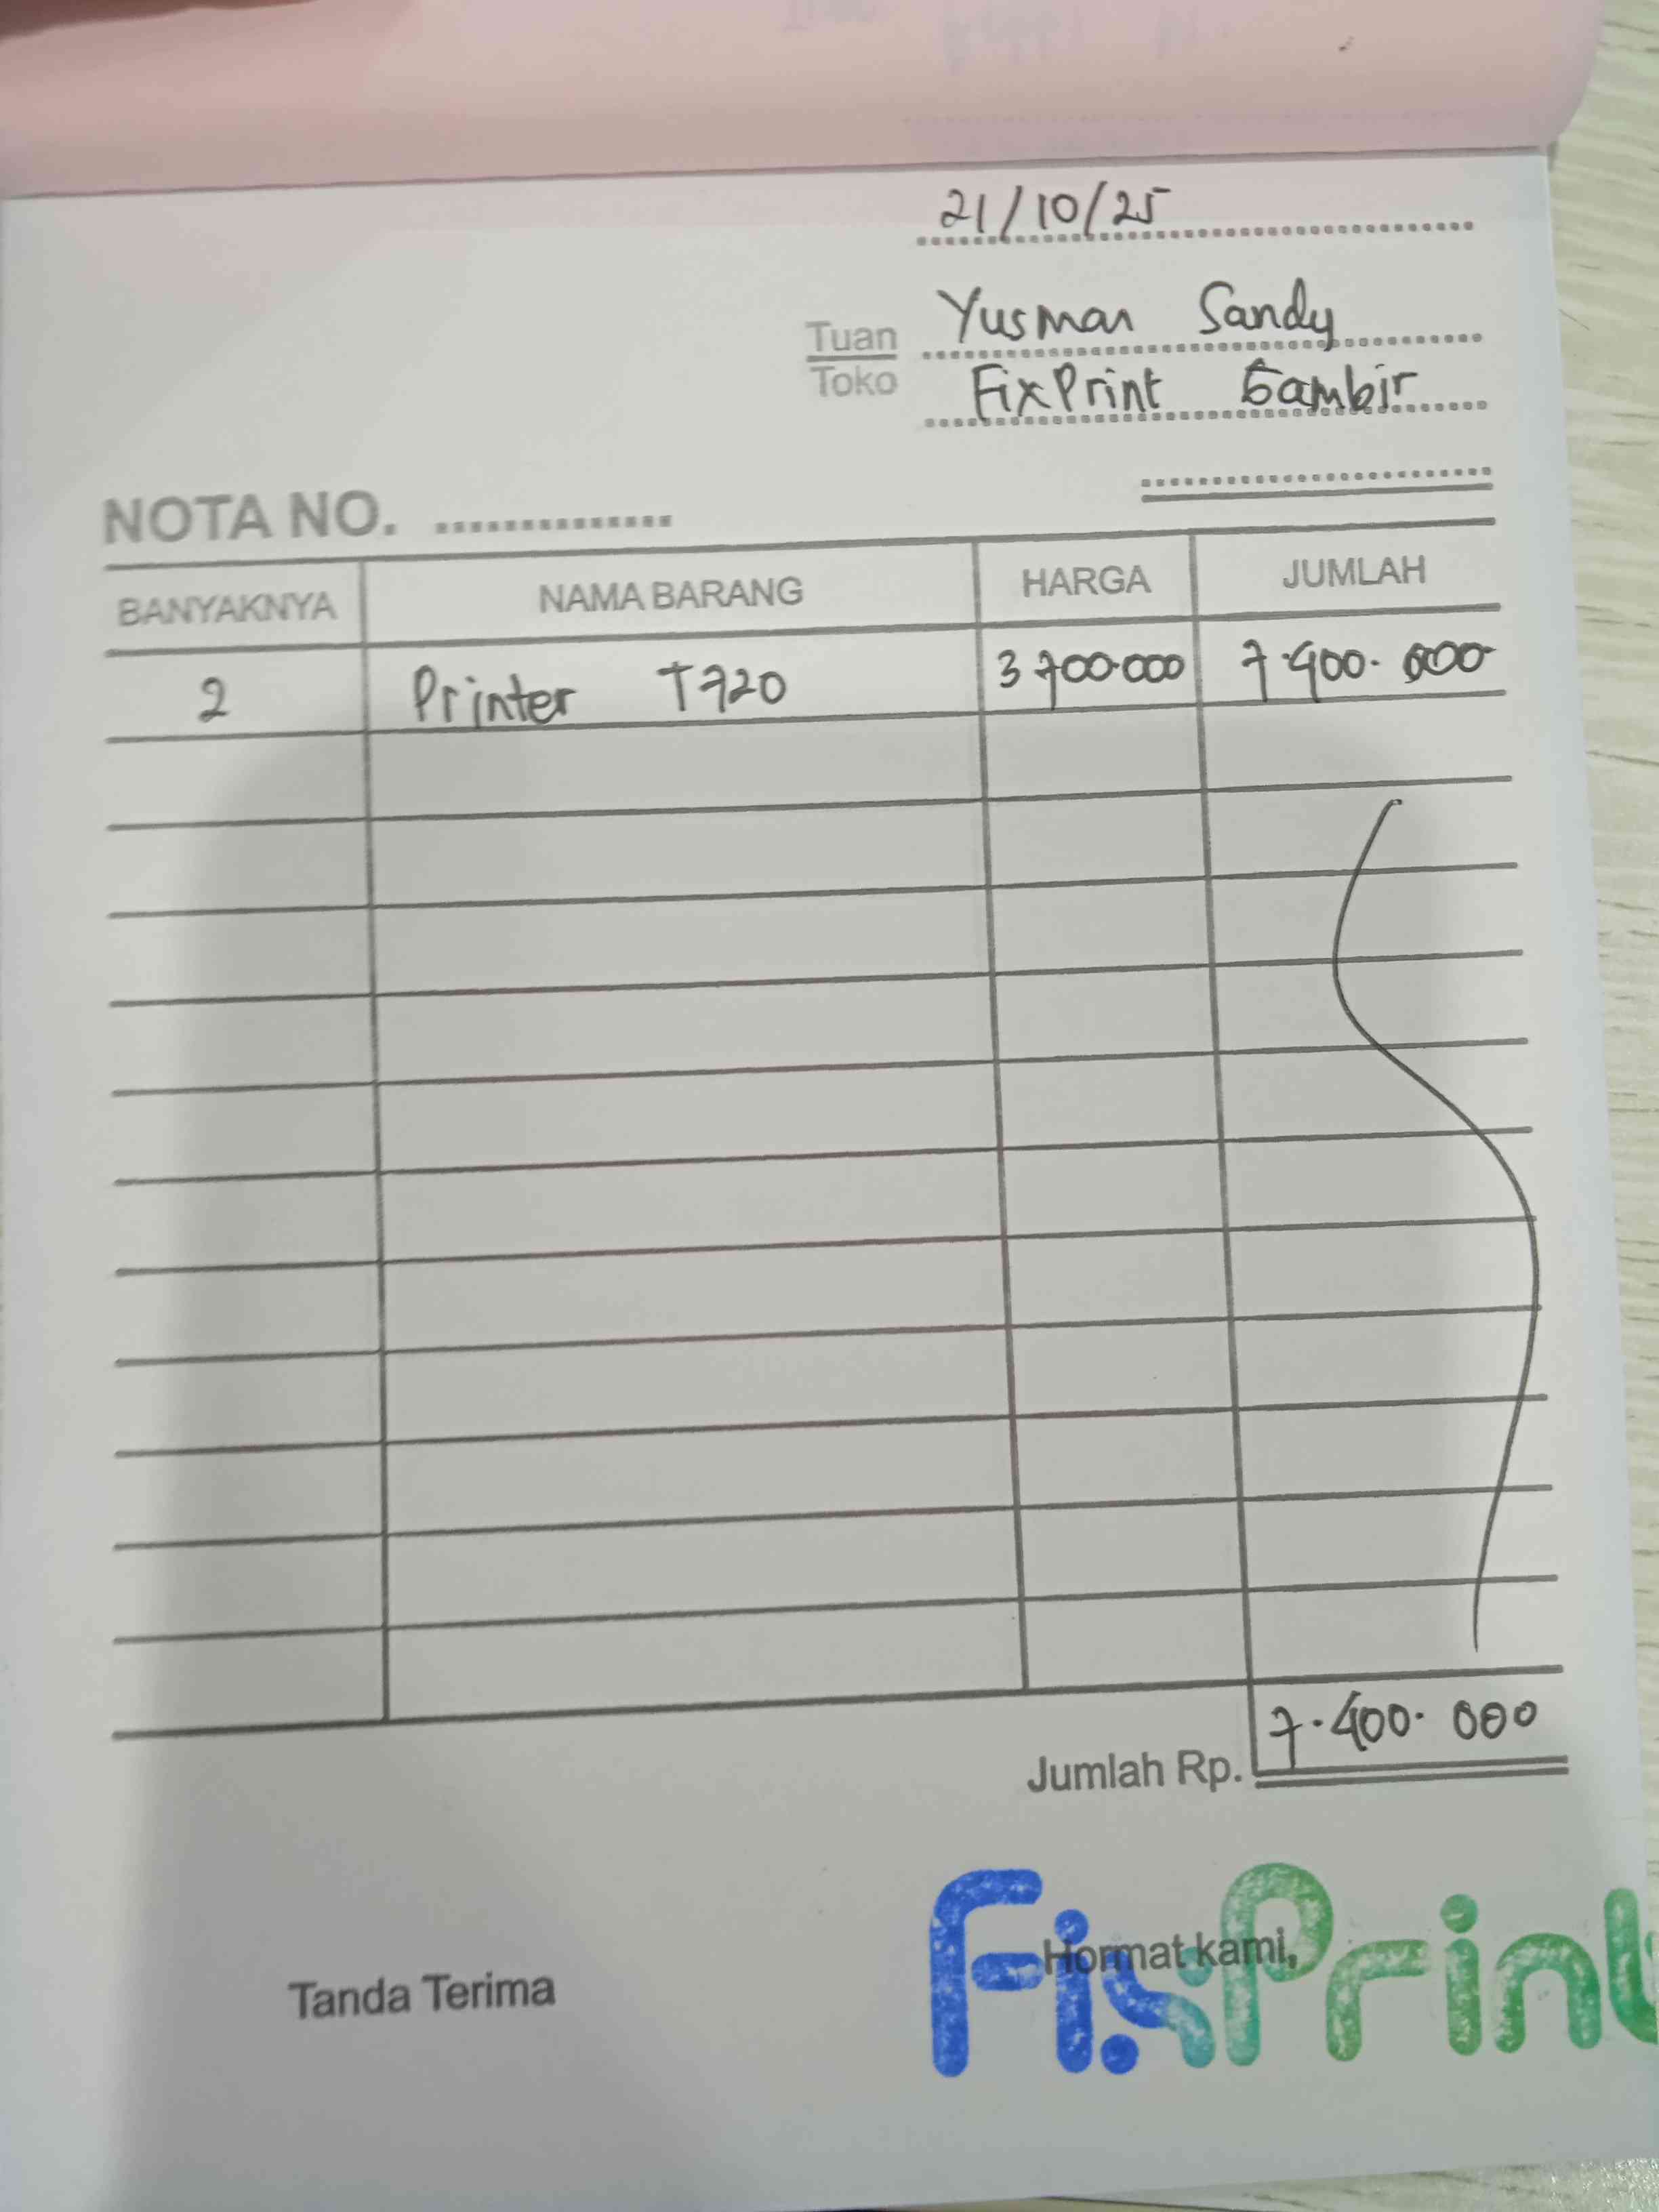 21/10/25
Tuan Yusman Sandy
Toko FixPrint Gambir
NOTA NO. ..............
BANYAKNYA NAMA BARANG HARGA JUMLAH
2 Printer T720 3 700.000 7.400.000
Jumlah Rp. 7.400.000
Tanda Terima Hormat kami,
FixPrint